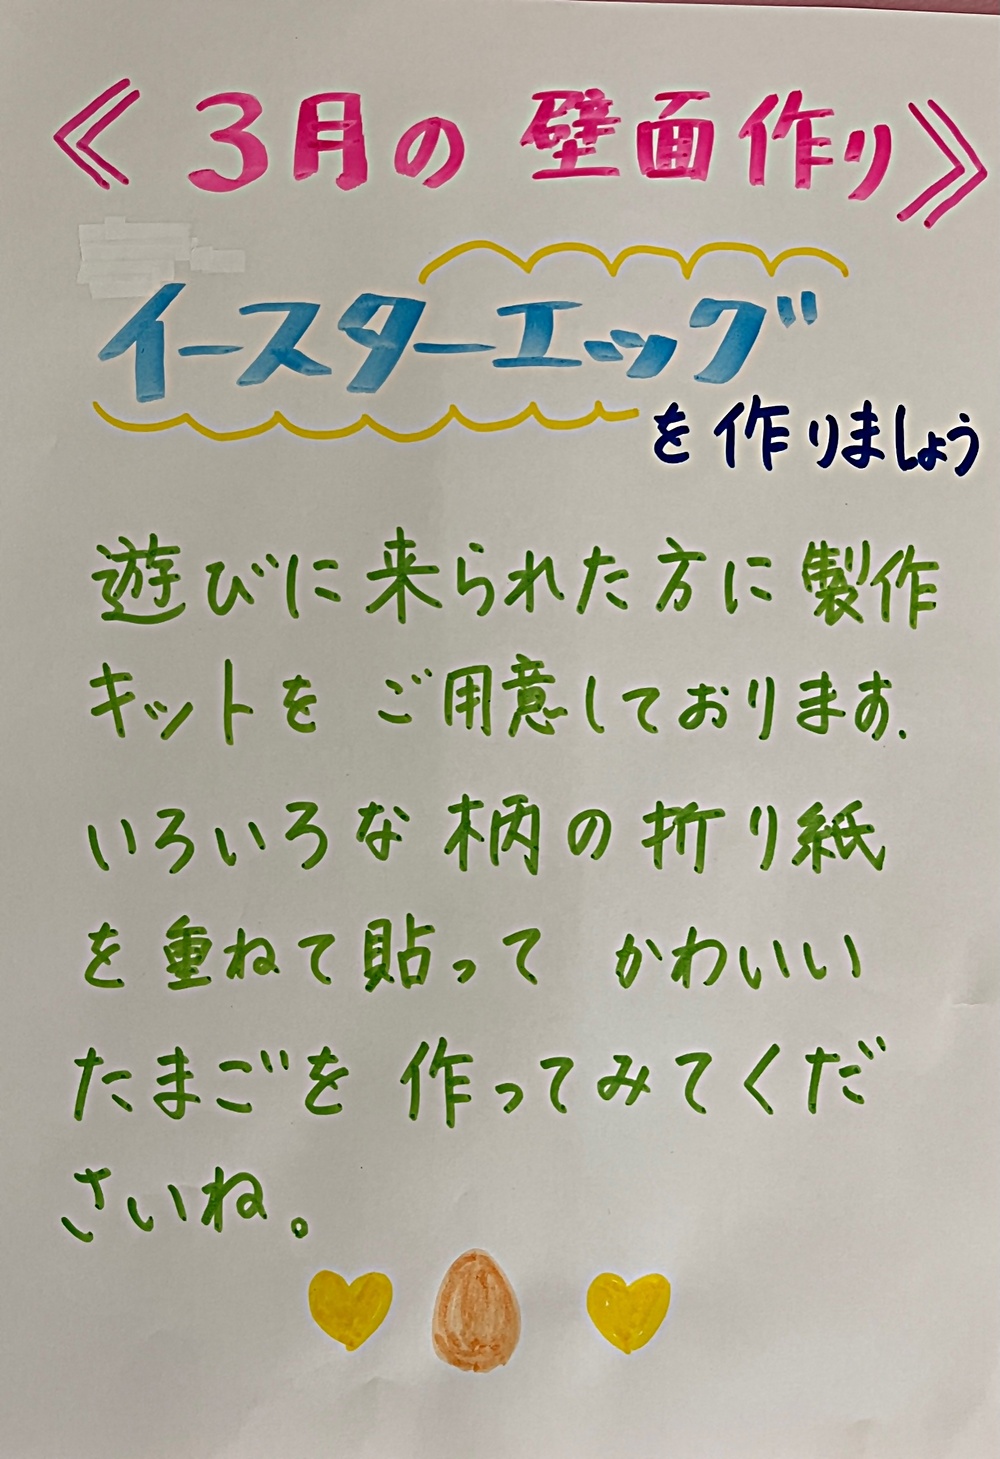 《3月の壁面作り》
イースターエッグ
を作りましょう
遊びに来られた方に製作
キットを ご用意しております.
いろいろな柄の折り紙
を重ねて貼って かわいい
たまごを 作ってみてくだ
さいね。